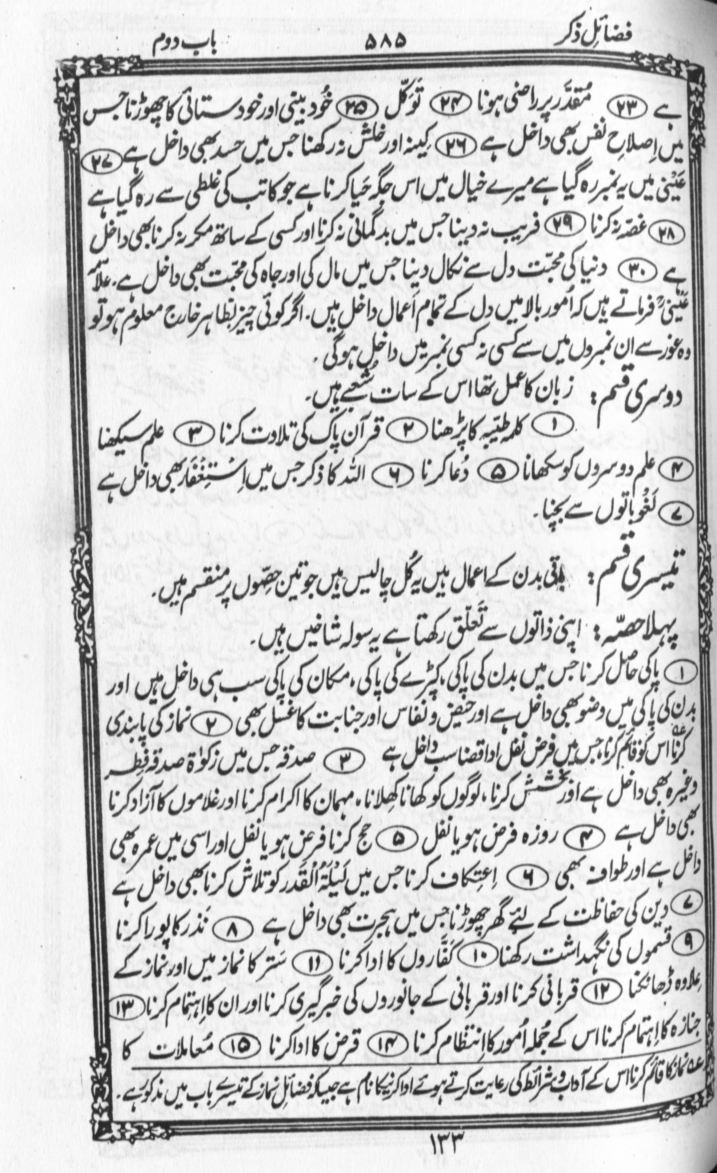 فضائلِ ذکر ۵۸۵ باب دوم
ہے ۲۳ مُقدَّر پر راضی ہونا ۲۴ توکّل ۲۵ خُود بینی اور خودستائی کا چھوڑنا جس
میں اِصلاحِ نفس بھی داخل ہے ۲۶ کِینہ اور خلش نہ رکھنا جس میں حسد بھی داخل ہے ۲۷
عَینی میں یہ نمبر رہ گیا ہے میرے خیال میں اس جگہ حَیا کرنا ہے جو کاتب کی غلطی سے رہ گیا ہے
۲۸ غصّہ نہ کرنا ۲۹ فریب نہ دینا جس میں بدگمانی نہ کرنا اور کسی کے ساتھ مکر نہ کرنا بھی داخل
ہے ۳۰ دنیا کی محبّت دل سے نکال دینا جس میں مال کی اور جاہ کی محبت بھی داخل ہے۔ علامہ
عَینیؒ فرماتے ہیں کہ اُمورِ بالا میں دل کے تمام اَعمال داخل ہیں۔ اگر کوئی چیز بظاہر خارج معلوم ہو تو
وہ غور سے ان نمبروں میں سے کسی نہ کسی نمبر میں داخل ہوگی۔
دوسری قسم: زبان کا عمل تھا اس کے سات شُعبے ہیں۔
۱ کلمہ طیّبہ کا پڑھنا ۲ قرآنِ پاک کی تلاوت کرنا ۳ علم سیکھنا
۴ علم دوسروں کو سکھانا ۵ دُعا کرنا ۶ اللہ کا ذکر جس میں اِستِغفار بھی داخل ہے
۷ لَغو باتوں سے بچنا۔
تیسری قسم: باقی بدن کے اعمال ہیں یہ کُل چالیس ہیں جو تین حصّوں پر منقسم ہیں۔
پہلا حصّہ: اپنی ذاتوں سے تَعلُّق رکھتا ہے یہ سولہ شاخیں ہیں۔
۱ پاکی حاصل کرنا جس میں بدن کی پاکی، کپڑے کی پاکی، مکان کی پاکی سب ہی داخل ہیں اور
بدن کی پاکی میں وضو بھی داخل ہے اور حیض و نفاس اور جنابت کا غسل بھی ۲ نماز کی پابندی
کرنا اس کو قائم کرنا جس میں فرض نفل ادا قضا سب داخل ہے ۳ صدقہ جس میں زکوٰۃ صدقہ فِطر
وغیرہ بھی داخل ہے اور بخشش کرنا، لوگوں کو کھانا کھلانا، مہمان کا اکرام کرنا اور غلاموں کا آزاد کرنا
بھی داخل ہے ۴ روزہ فرض ہو یا نفل ۵ حج کرنا فرض ہو یا نفل اور اسی میں عمرہ بھی
داخل ہے اور طواف بھی ۶ اِعتِکاف کرنا جس میں لَیلۃُ القَدر کو تلاش کرنا بھی داخل ہے
۷ دین کی حفاظت کے لئے گھر چھوڑنا جس میں ہجرت بھی داخل ہے ۸ نذر کا پورا کرنا
۹ قسموں کی نگہداشت رکھنا ۱۰ کفّاروں کا ادا کرنا ۱۱ ستر کا نماز میں اور نماز کے
عِلاوہ ڈھانکنا ۱۲ قربانی کرنا اور قربانی کے جانوروں کی خبرگیری کرنا اور ان کا اِہتمام کرنا ۱۳
جنازہ کا اِہتمام کرنا اس کے جُملہ اُمور کا اِنتظام کرنا ۱۴ قرض کا ادا کرنا ۱۵ مُعاملات کا
عہ نماز کا قائم کرنا اس کے آداب و شرائط کی رعایت کرتے ہوئے ادا کرنیکا نام ہے جیسا کہ فضائل نماز کے تیسرے باب میں مذکور ہے۔
۱۳۳